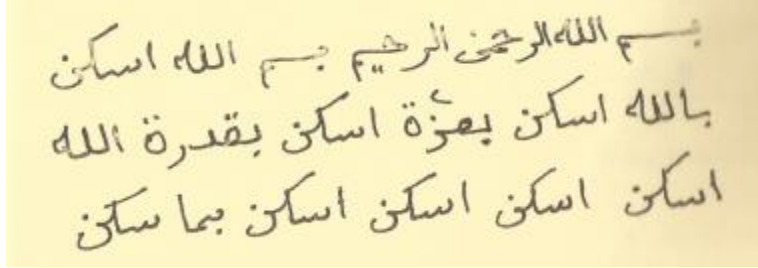 بسم الله الرحمن الرحيم بسم الله اسكن
بالله اسكن بعزة اسكن بقدرة الله
اسكن اسكن اسكن اسكن بما سكن